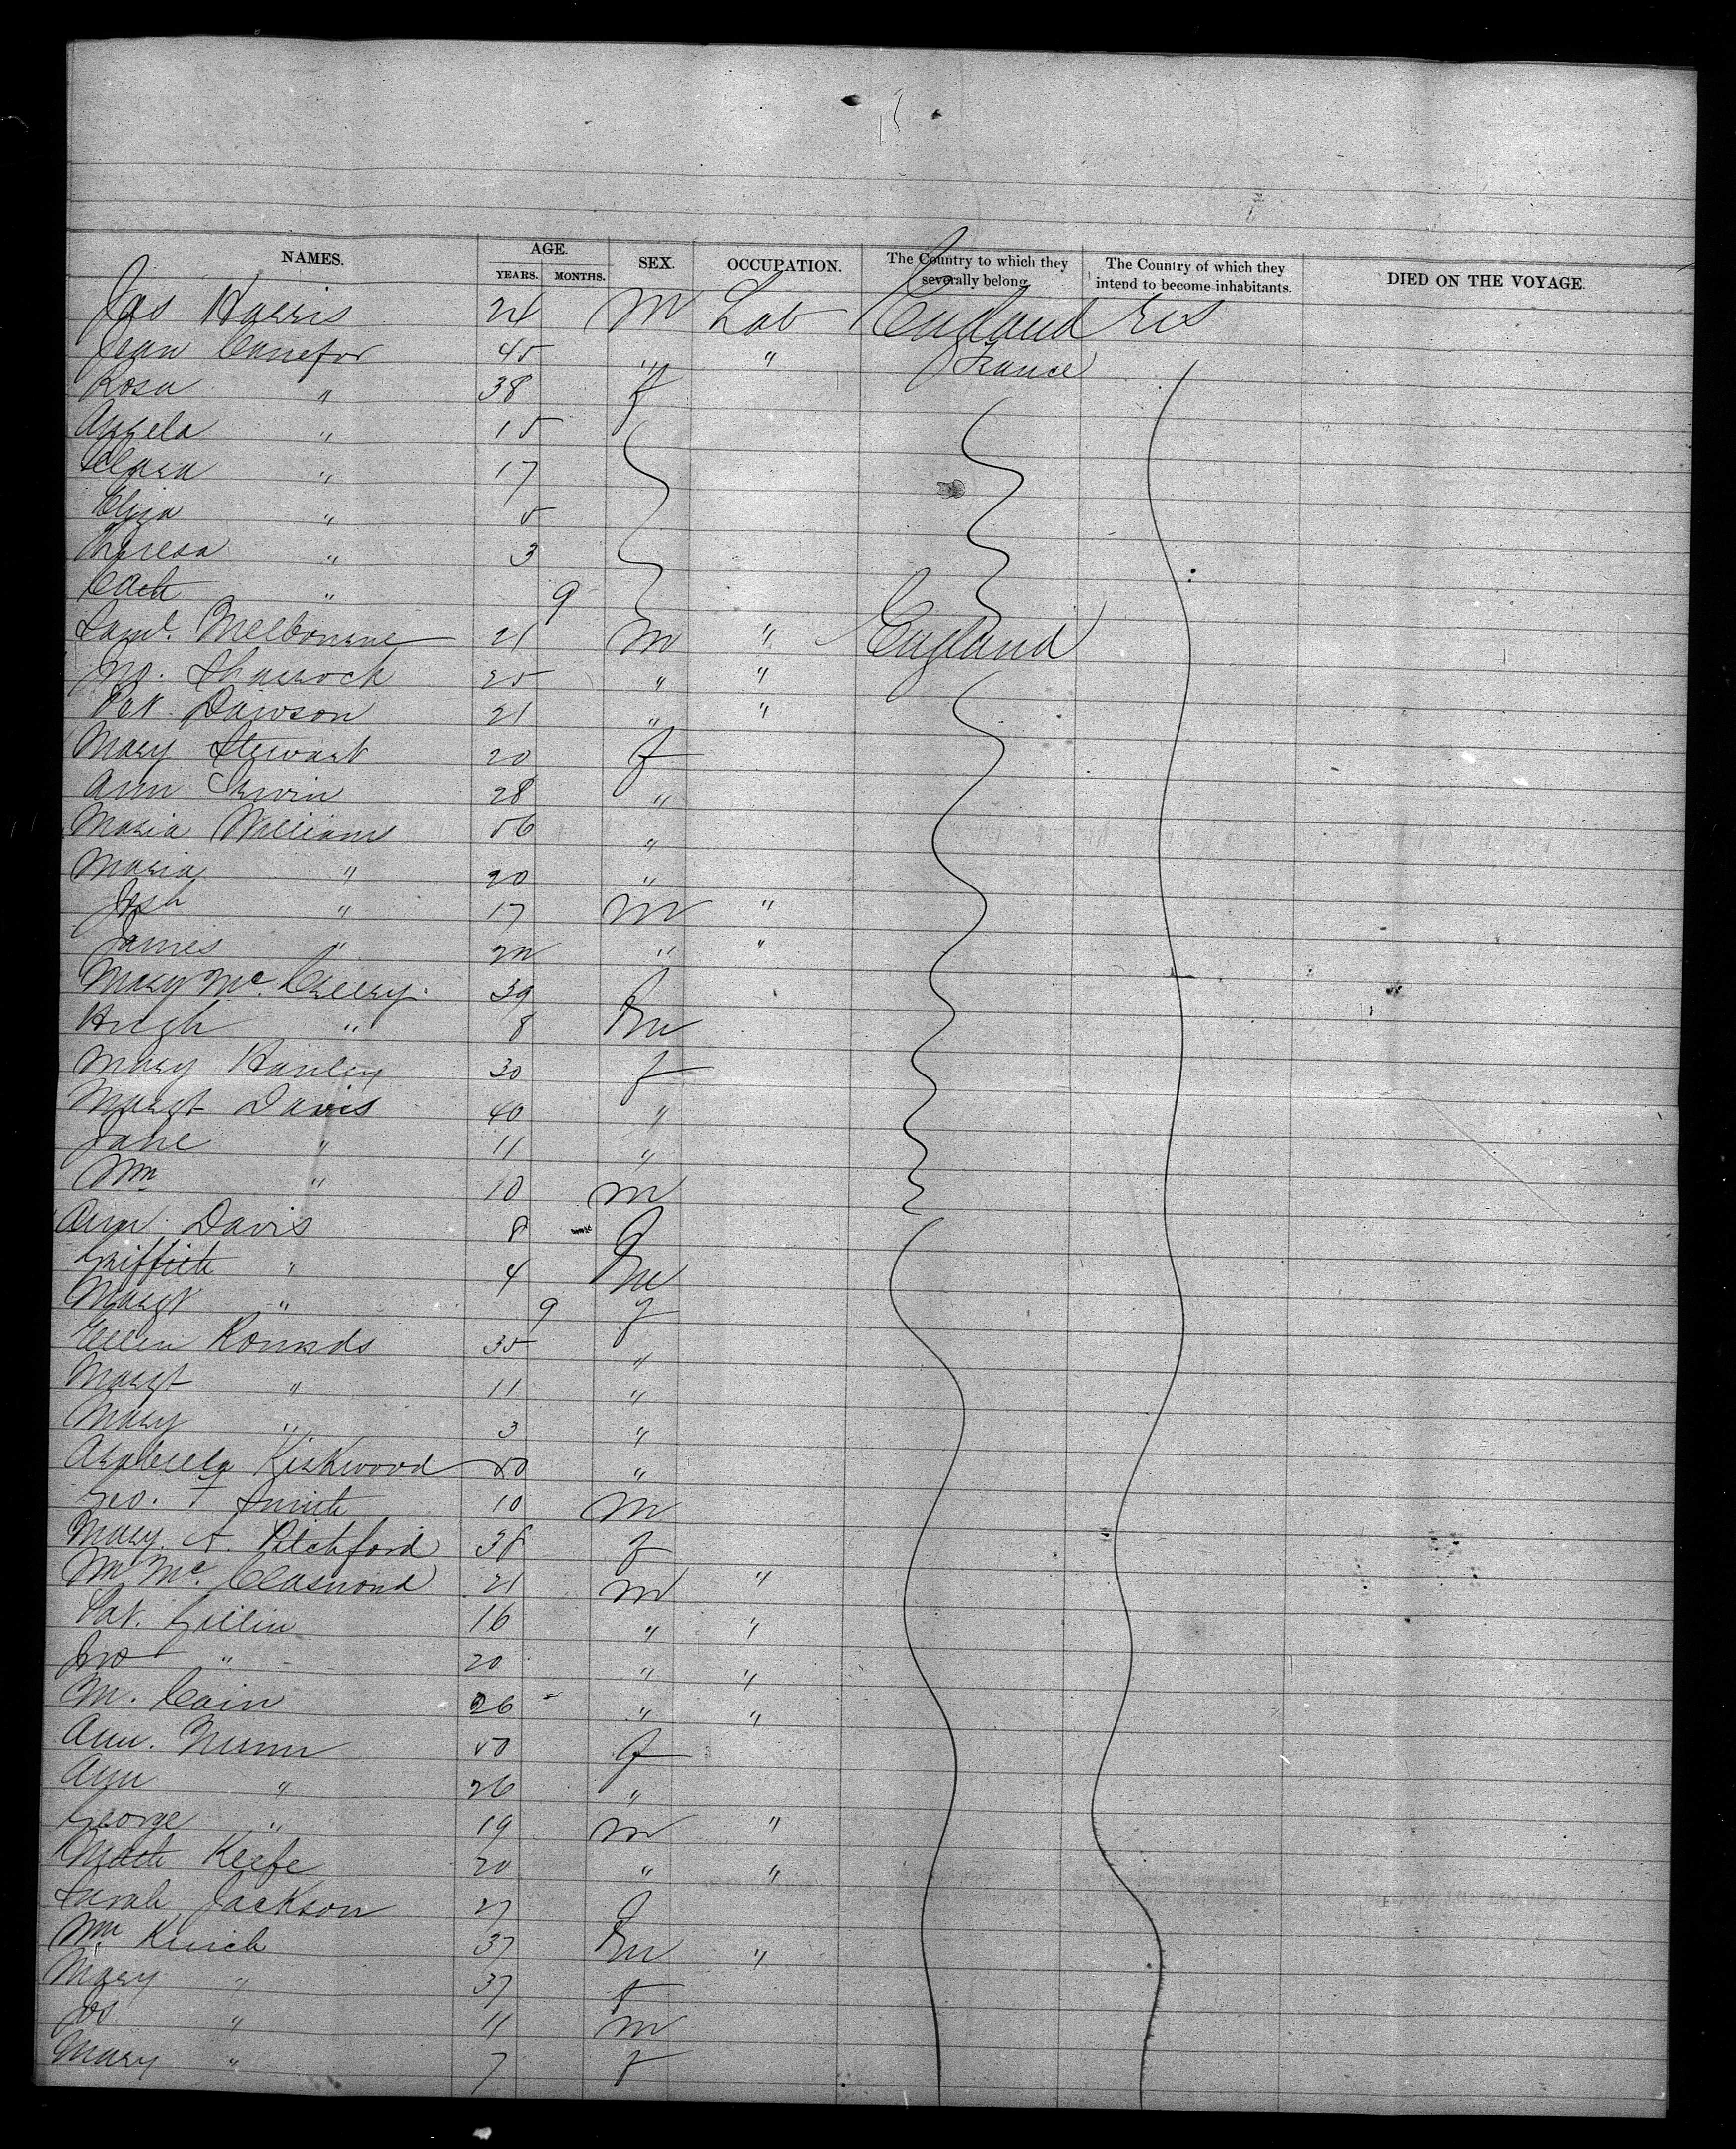 NAMES. AGE. SEX. OCCUPATION. The Country to which they severally belong. The Country of which they intend to become inhabitants. DIED ON THE VOYAGE.
YEARS. MONTHS.
Jas Harris 24 M Lab England U S
Jean Canefor 45 " " France
Rosa " 38 f
Angela " 15
Clara " 17
Eliza " 5
Theresa " 3
Cath " 9
Saml. Melbourne 21 M " England
Jno. Sharrock 25 " "
Pat. Dawson 21 " "
Mary Stewart 20 f
Ann Irwin 28 "
Maria Williams 56 "
Maria " 20 "
Josh " 17 M "
James " 22 " "
Mary Mc. Creery 39 f
Hugh " 8 m
Mary Hanley 30 f
Margt Davis 40 "
Jane " 11 "
Wm " 10 M
Ann. Davis 8 f
Griffith " 4 m
Margt " 9 f
Ellen Rounds 35 "
Margt " 11 "
Mary " 3 "
Arabella Kirkwood 50 "
Geo. F Smith 10 M
Mary. A. Pitchford 38 f
Wm Mc. 21 M "
Pat. Gillin 16 " "
Jno " 20 " "
M. Cain 26 " "
Ann. Nunn 50 f
Ann " 26 "
George " 19 M "
Math Keefe 20 " "
Sarah Jackson 27 f
Wm Kinich 37 m "
Mary " 37 f
Jos " 11 M
Mary " 7 f